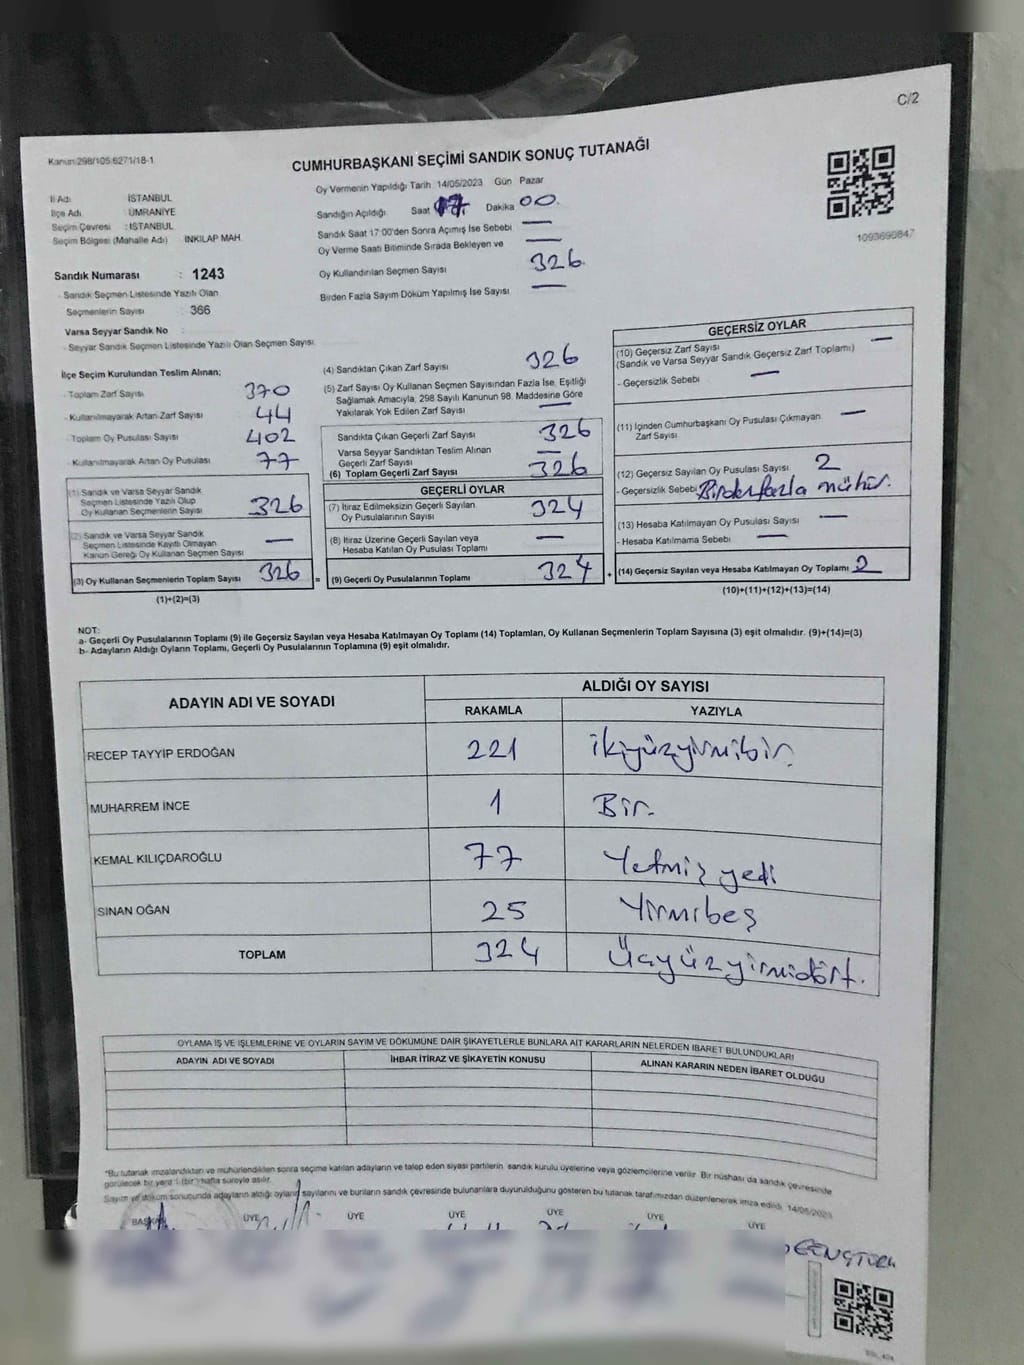 C/2
Kanun:298/105;6271/18-1
CUMHURBAŞKANI SEÇİMİ SANDIK SONUÇ TUTANAĞI
İl Adı İSTANBUL
İlçe Adı ÜMRANİYE
Seçim Çevresi : İSTANBUL
Seçim Bölgesi (Mahalle Adı) INKILAP MAH.
Sandık Numarası : 1243
- Sandık Seçmen Listesinde Yazılı Olan
Seçmenlerin Sayısı : 366
Varsa Seyyar Sandık No
- Seyyar Sandık Seçmen Listesinde Yazılı Olan Seçmen Sayısı:
Oy Vermenin Yapıldığı Tarih 14/05/2023 Gün Pazar
Sandığın Açıldığı Saat 17. Dakika 00.
Sandık Saat 17:00'den Sonra Açımış İse Sebebi —
Oy Verme Saati Bitiminde Sırada Bekleyen ve —
Oy Kullandırılan Seçmen Sayısı 326.
Birden Fazla Sayım Döküm Yapılmış İse Sayısı —
1093690847
İlçe Seçim Kurulundan Teslim Alınan;
- Toplam Zarf Sayısı 370
- Kullanılmayarak Artan Zarf Sayısı 44
- Toplam Oy Pusulası Sayısı 402
- Kullanılmayarak Artan Oy Pusulası 77
(1) Sandık ve Varsa Seyyar Sandık
Seçmen Listesinde Yazılı Olup
Oy Kullanan Seçmenlerin Sayısı 326
(2) Sandık ve Varsa Seyyar Sandık
Seçmen Listesinde Kayıtlı Olmayan
Kanun Gereği Oy Kullanan Seçmen Sayısı —
(3) Oy Kullanan Seçmenlerin Toplam Sayısı 326 =
(1)+(2)=(3)
(4) Sandıktan Çıkan Zarf Sayısı 326
(5) Zarf Sayısı Oy Kullanan Seçmen Sayısından Fazla İse, Eşitliği
Sağlamak Amacıyla, 298 Sayılı Kanunun 98. Maddesine Göre
Yakılarak Yok Edilen Zarf Sayısı —
Sandıkta Çıkan Geçerli Zarf Sayısı 326
Varsa Seyyar Sandıktan Teslim Alınan
Geçerli Zarf Sayısı —
(6) Toplam Geçerli Zarf Sayısı 326
GEÇERLİ OYLAR
(7) İtiraz Edilmeksizin Geçerli Sayılan
Oy Pusulalarının Sayısı 324
(8) İtiraz Üzerine Geçerli Sayılan veya
Hesaba Katılan Oy Pusulası Toplamı —
(9) Geçerli Oy Pusulalarının Toplamı 324 +
GEÇERSİZ OYLAR
(10) Geçersiz Zarf Sayısı —
(Sandık ve Varsa Seyyar Sandık Geçersiz Zarf Toplamı)
- Geçersizlik Sebebi —
(11) İçinden Cumhurbaşkanı Oy Pusulası Çıkmayan —
Zarf Sayısı
(12) Geçersiz Sayılan Oy Pusulası Sayısı 2
- Geçersizlik Sebebi Birden fazla mühür.
(13) Hesaba Katılmayan Oy Pusulası Sayısı —
- Hesaba Katılmama Sebebi —
(14) Geçersiz Sayılan veya Hesaba Katılmayan Oy Toplamı 2
(10)+(11)+(12)+(13)=(14)
NOT:
a- Geçerli Oy Pusulalarının Toplamı (9) ile Geçersiz Sayılan veya Hesaba Katılmayan Oy Toplamı (14) Toplamları, Oy Kullanan Seçmenlerin Toplam Sayısına (3) eşit olmalıdır. (9)+(14)=(3)
b- Adayların Aldığı Oyların Toplamı, Geçerli Oy Pusulalarının Toplamına (9) eşit olmalıdır.
ADAYIN ADI VE SOYADI ALDIĞI OY SAYISI
RAKAMLA YAZIYLA
RECEP TAYYİP ERDOĞAN 221 ikiyüzyirmibir.
MUHARREM İNCE 1 Bir.
KEMAL KILIÇDAROĞLU 77 Yetmiş yedi
SİNAN OĞAN 25 Yirmibeş
TOPLAM 324 Üçyüzyirmidört.
OYLAMA İŞ VE İŞLEMLERİNE VE OYLARIN SAYIM VE DÖKÜMÜNE DAİR ŞİKAYETLERLE BUNLARA AİT KARARLARIN NELERDEN İBARET BULUNDUKLARI
ADAYIN ADI VE SOYADI İHBAR İTİRAZ VE ŞİKAYETİN KONUSU ALINAN KARARIN NEDEN İBARET OLDUĞU
*Bu tutanak imzalandıktan ve mühürlendikten sonra seçime katılan adayların ve talep eden siyasi partilerin sandık kurulu üyelerine veya gözlemcilerine verilir. Bir nüshası da sandık çevresinde
görülecek bir yere 1 (bir) hafta süreyle asılır.
Sayım ve döküm sonucunda adayların aldığı oyların sayılarını ve bunların sandık çevresinde bulunanlara duyurulduğunu gösteren bu tutanak tarafımızdan düzenlenerek imza edildi. 14/05/2023
BAŞKAN ÜYE ÜYE ÜYE ÜYE ÜYE ÜYE